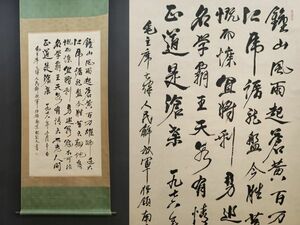 鍾山風雨起蒼黄百万雄師過大
江虎踞龍盤今勝昔天翻地覆
慨而慷宜將剩勇追窮寇不可沽
名學霸王天若有情天亦老人間
正道是滄桑
毛主席七律人民解放軍佔領南京
鍾山風雨起蒼黄百万
江虎踞龍盤今勝昔
慨而慷宜將剩勇追
名學霸王天若有情
正道是滄桑一九七六年
毛主席七律人民解放軍佔領南